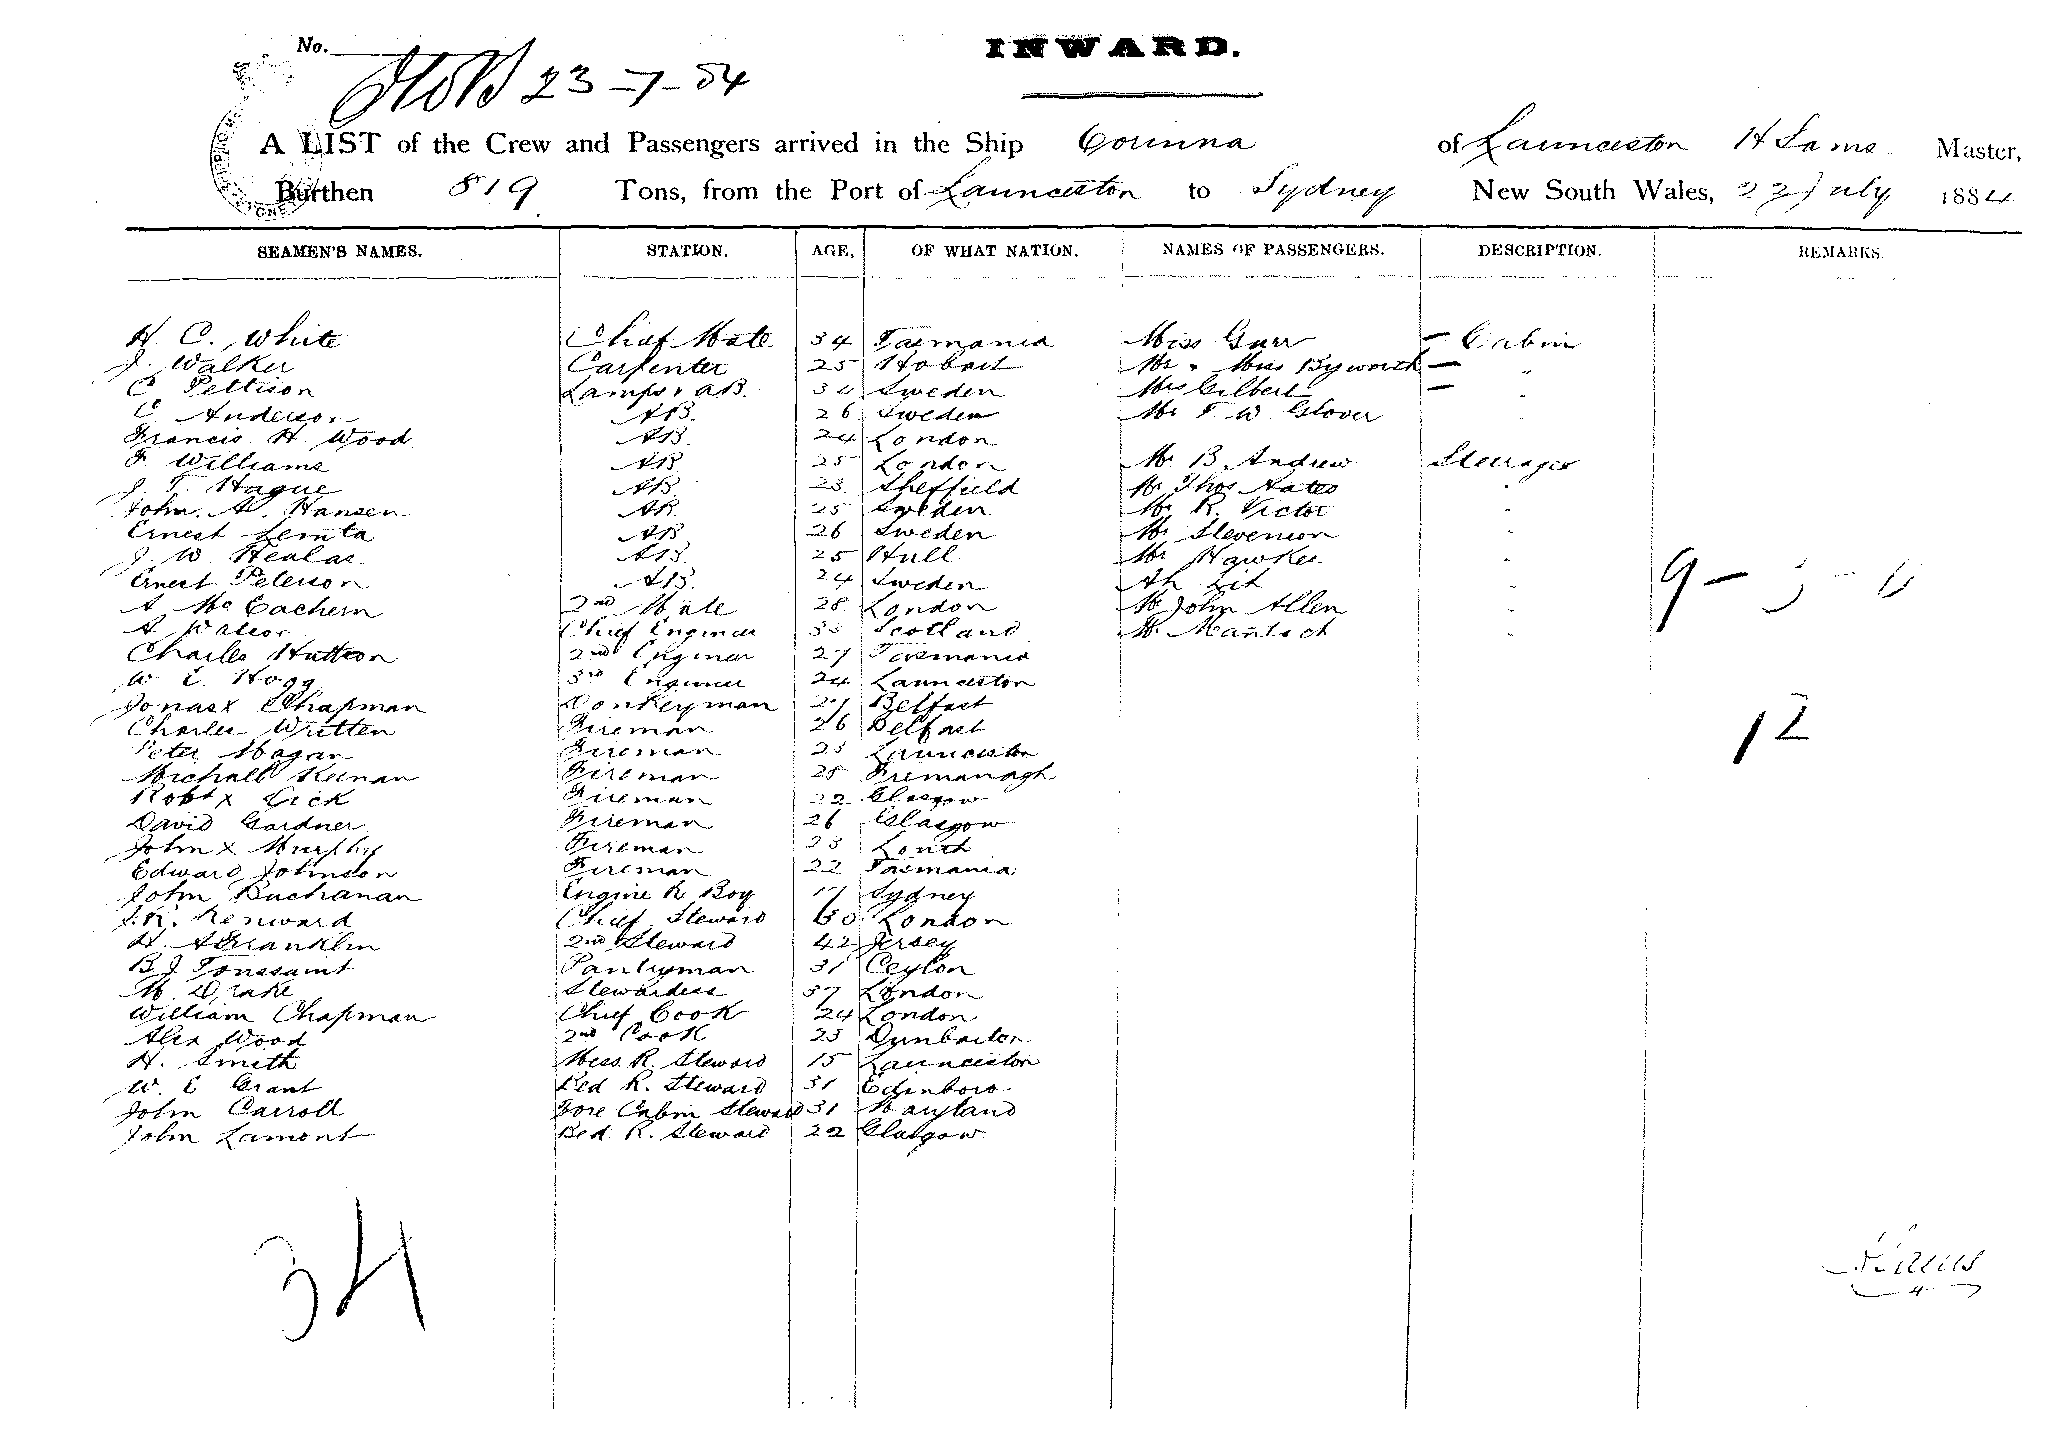 No.
23-7-84
INWARD.
A LIST of the Crew and Passengers arrived in the Ship Corinna of Launceston H Sams Master,
Burthen 819 Tons, from the Port of Launceston to Sydney New South Wales, 23 July 1884
SEAMEN'S NAMES. STATION. AGE, OF WHAT NATION. NAMES OF PASSENGERS. DESCRIPTION. REMARKS.
H. C. White Chief Mate 34 Tasmania Miss Gurr — Cabin
J. Walker Carpenter 25 Hobart Mr & Miss Byworth — "
C Pettison Lamps & AB. Sweden Mrs Gilbert — "
C Anderson AB. 26 Sweden Mr F. W Glover
Francis H Wood AB 24 London
F Williams AB 25 London Mr B Andrew Steerage
J. T. Hague AB 23 Sheffield Mr Thos "
John. A. Hansen AB. 25 Sweden Mr R. Victor "
Ernest AB 26 Sweden Mr Stevenson "
J W AB. 25 Hull Mr Hawkes "
Ernest Peterson AB. 24 Sweden Ah "
A McEachern 2nd Mate 28 London Mr John Allen "
A Chief Engineer Scotland Mr "
Charles Hutton 2nd Engineer 27 Tasmania
W E. Hogg 3rd Engineer 24 Launceston
Jonas x Chapman Donkeyman 27 Belfast
Charles Written Fireman 26 Belfast
Peter Hogan Fireman 23 Launceston
Michall Keenan Fireman 28 Fremanagh
Robt x Lick Fireman 22 Glasgow
David Gardner Fireman 26 Glasgow
John x Murphy Fireman 23 Louth
Edward Johnson Fireman 22 Tasmania
John Buchanan Engine R Boy 17 Sydney
J. K. Kenward Chief Steward London
H. A Franklin 2nd Steward 42 Jersey
B J Toussaint Pantryman 31 Ceylon
M. Drake Stewardess 37 London
William Chapman Chief Cook 24 London
Alex Wood 2nd Cook 23 Dunbarton
H. Smith Mess R. Steward 15 Launceston
W. E Grant Bed R. Steward 31 Edinboro
John Carroll Fore Cabin Steward 31 Maryland
John Lamont Bed R. Steward 22 Glasgow
12
34